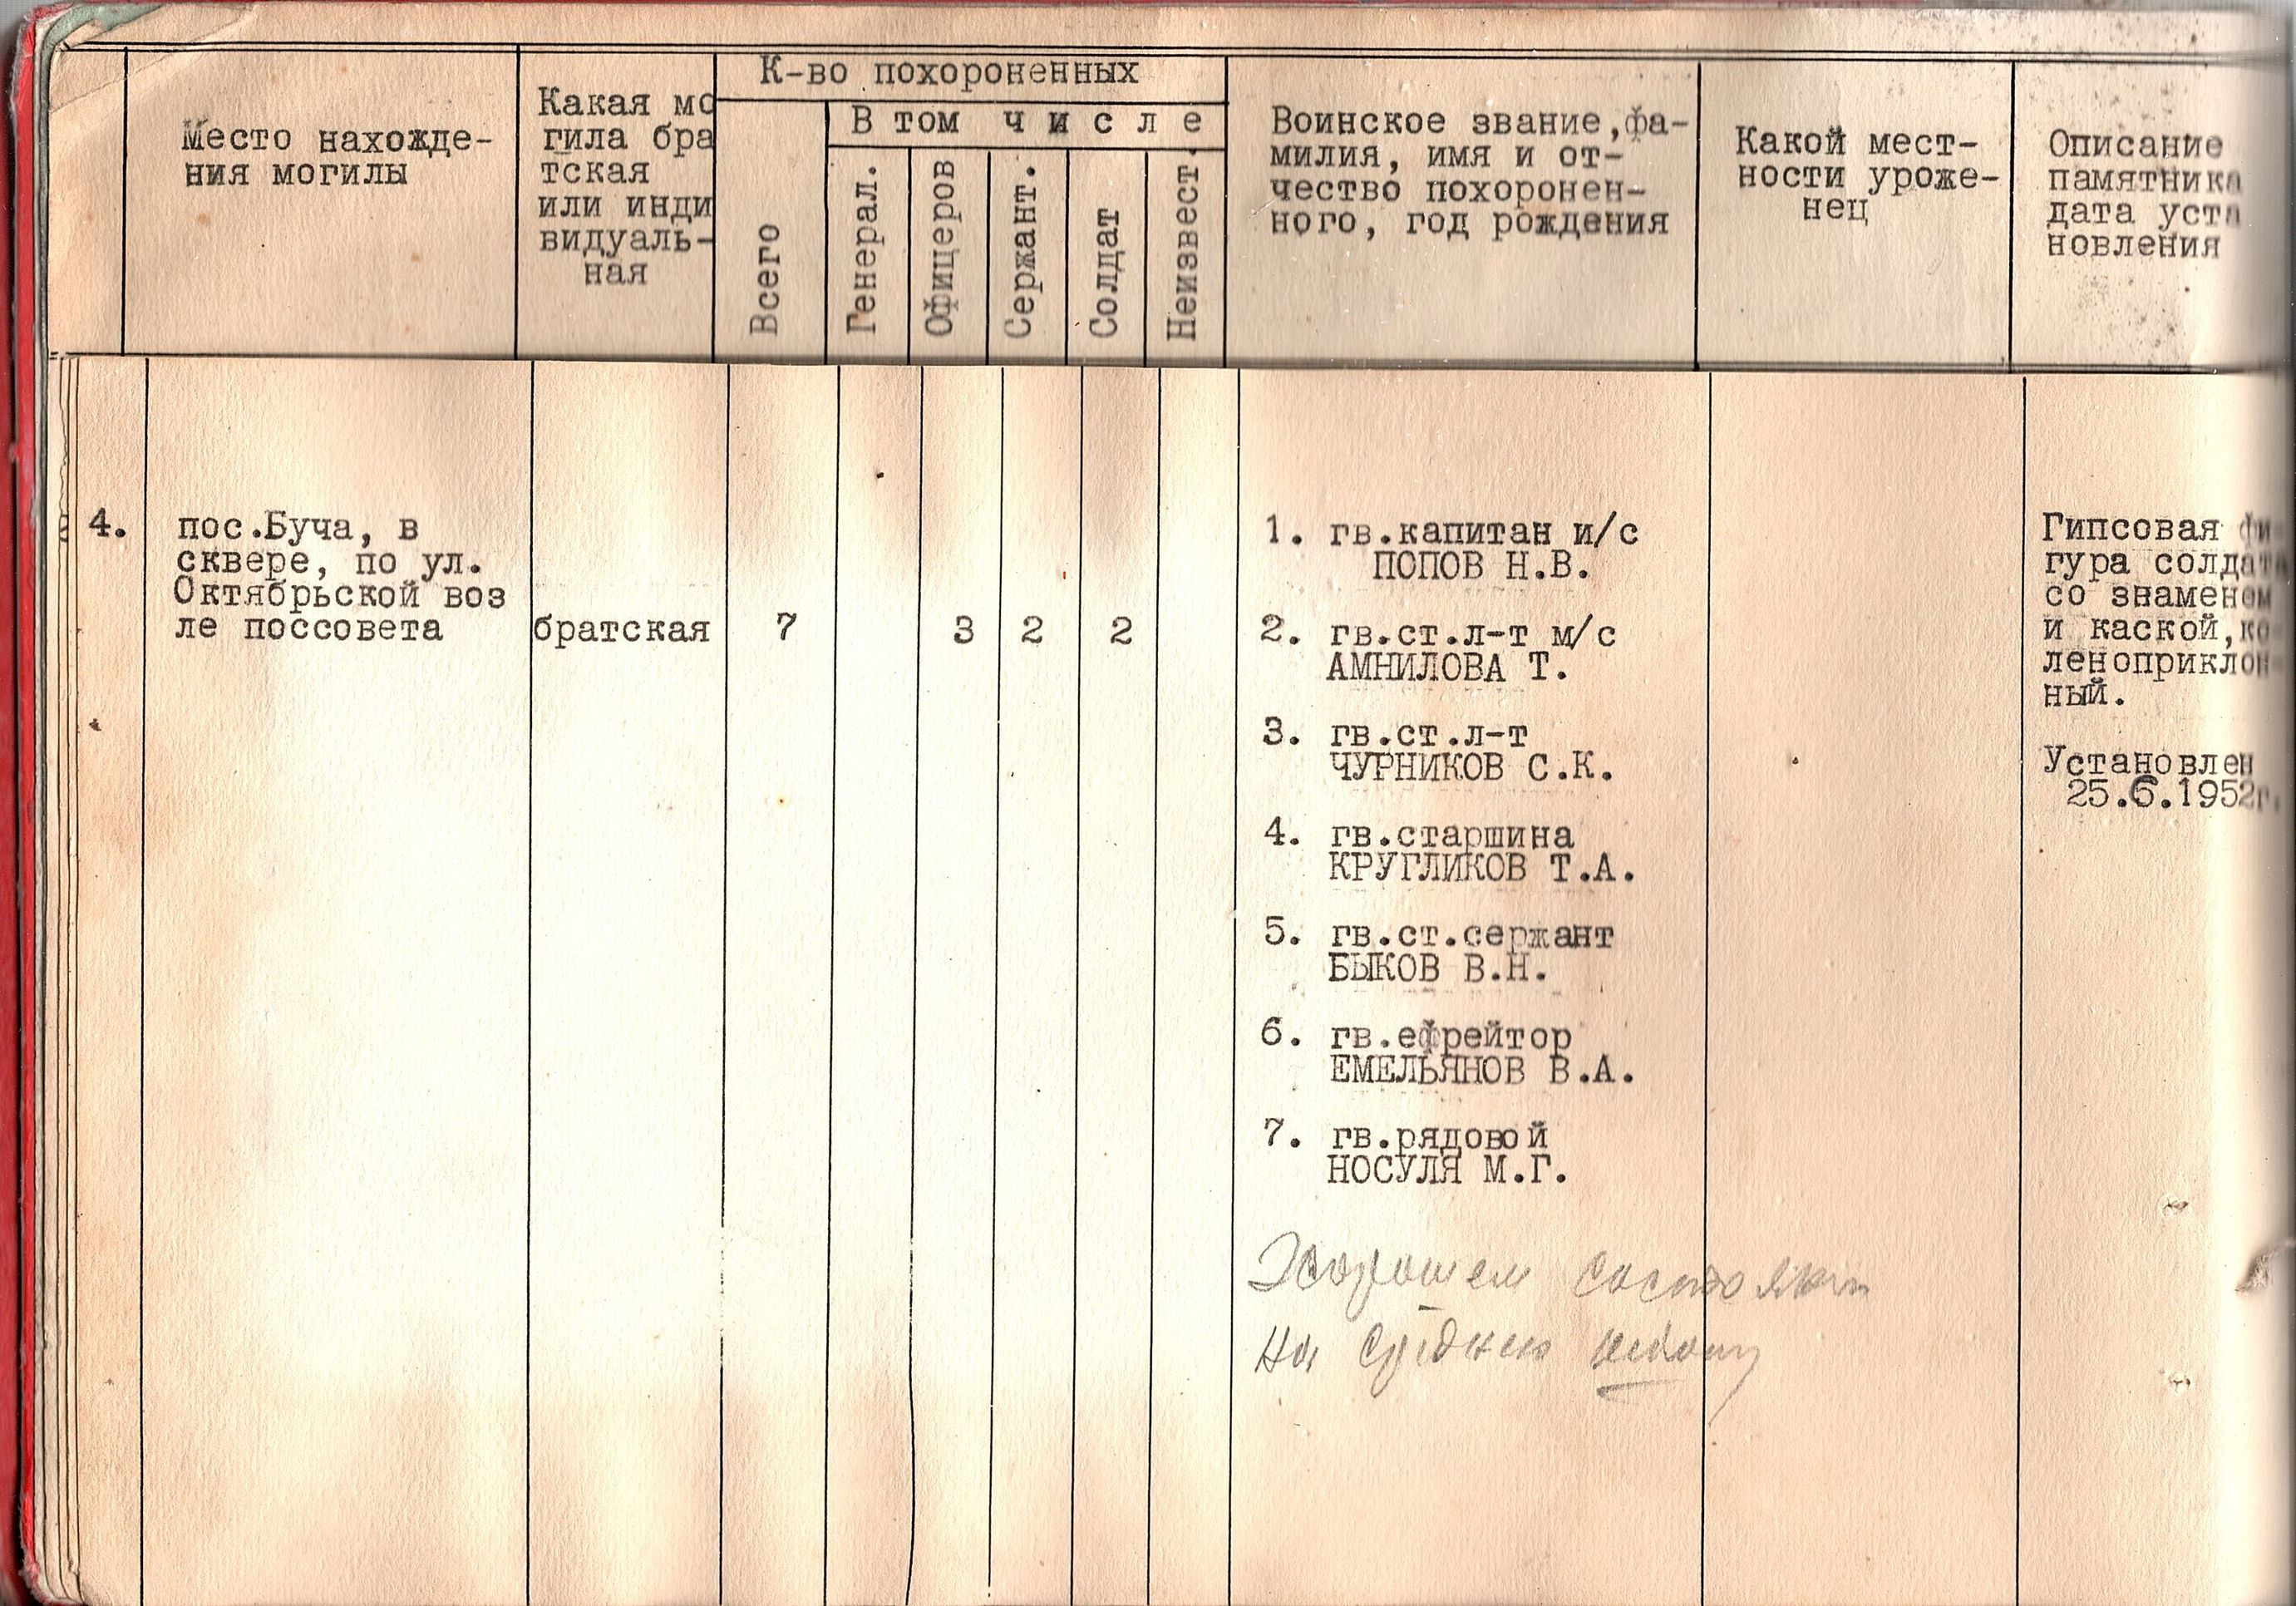 К-во похороненных
Место нахожде-
ния могилы
Какая мо
гила бра
тская
или инди
видуаль-
ная
Всего
В том числе
Генерал.
Офицеров
Сержант.
Солдат
Неизвест.
Воинское звание, фа-
милия, имя и от-
чество похоронен-
ного, год рождения
Какой мест-
ности уроже-
нец
Описание
памятника
дата уста
новления
4.
пос.Буча, в
сквере, по ул.
Октябрьской воз
ле поссовета
братская
7
3
2
2
1. гв.капитан и/с
ПОПОВ Н.В.
2. гв.ст.л-т м/с
АМНИЛОВА Т.
3. гв.ст.л-т
ЧУРНИКОВ С.К.
4. гв.старшина
КРУГЛИКОВ Т.А.
5. гв.ст.сержант
БЫКОВ В.Н.
6. гв.ефрейтор
ЕМЕЛЬЯНОВ В.А.
7. гв.рядовой
НОСУЛЯ М.Г.
на
Гипсовая фи
гура солдата
со знаменем
и каской, ко
леноприклон
ный.
Установлен
25.6.1952г.